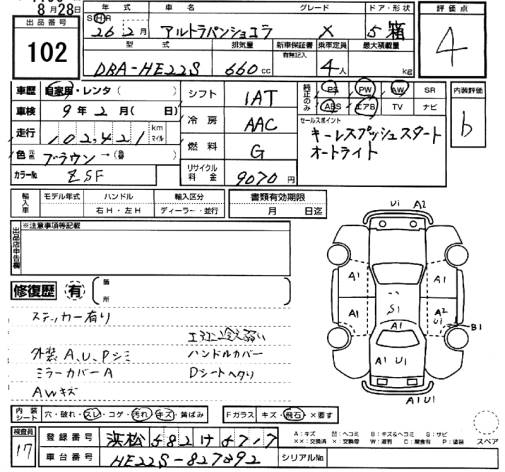 8月28日
出品番号 年式 車名 グレード ドア・形状 評価点
SH 26年2月 アルトラパンショコラ X 5 箱
102
型式 排気量 新車保証書 有無記入 乗車定員 最大積載量
DBA-HE22S 660cc 4人 kg
4
車歴 自家用・レンタ( ) シフト IAT 純正のみ PS PW AW SR 内装評価
ABS エアB TV ナビ
車検 9年2月( 日) 冷房 AAC セールスポイント
b
走行 102,421 km マイル キーレスプッシュスタート
燃料 G オートライト
色 元色 ブラウン→(替 )
カラーNo ZSF リサイクル料金 9070円
輸入車 モデル年式 ハンドル 輸入区分 書類有効期限
右H・左H ディーラー・並行 月 日迄
出品店申告欄 ※注意事項等記載
修復歴 有 箇所
ステッカー有り
エアコン冷え弱い
外装、A、U、Pシミ ハンドルカバー
ミラーカバーA Dシートヘタリ
AWキズ
Ui A2
A1 A1
S1
A1 A2 U1
A1 B1
A1 U1
A1U1
内装シート 穴・破れ・スレ・コゲ・汚れ・キズ・黄ばみ Fガラス キズ・飛石・×要す
A：キズ スペア
検査員 17
登録番号 浜松
車台番号 HE22S-827892 シリアルNo